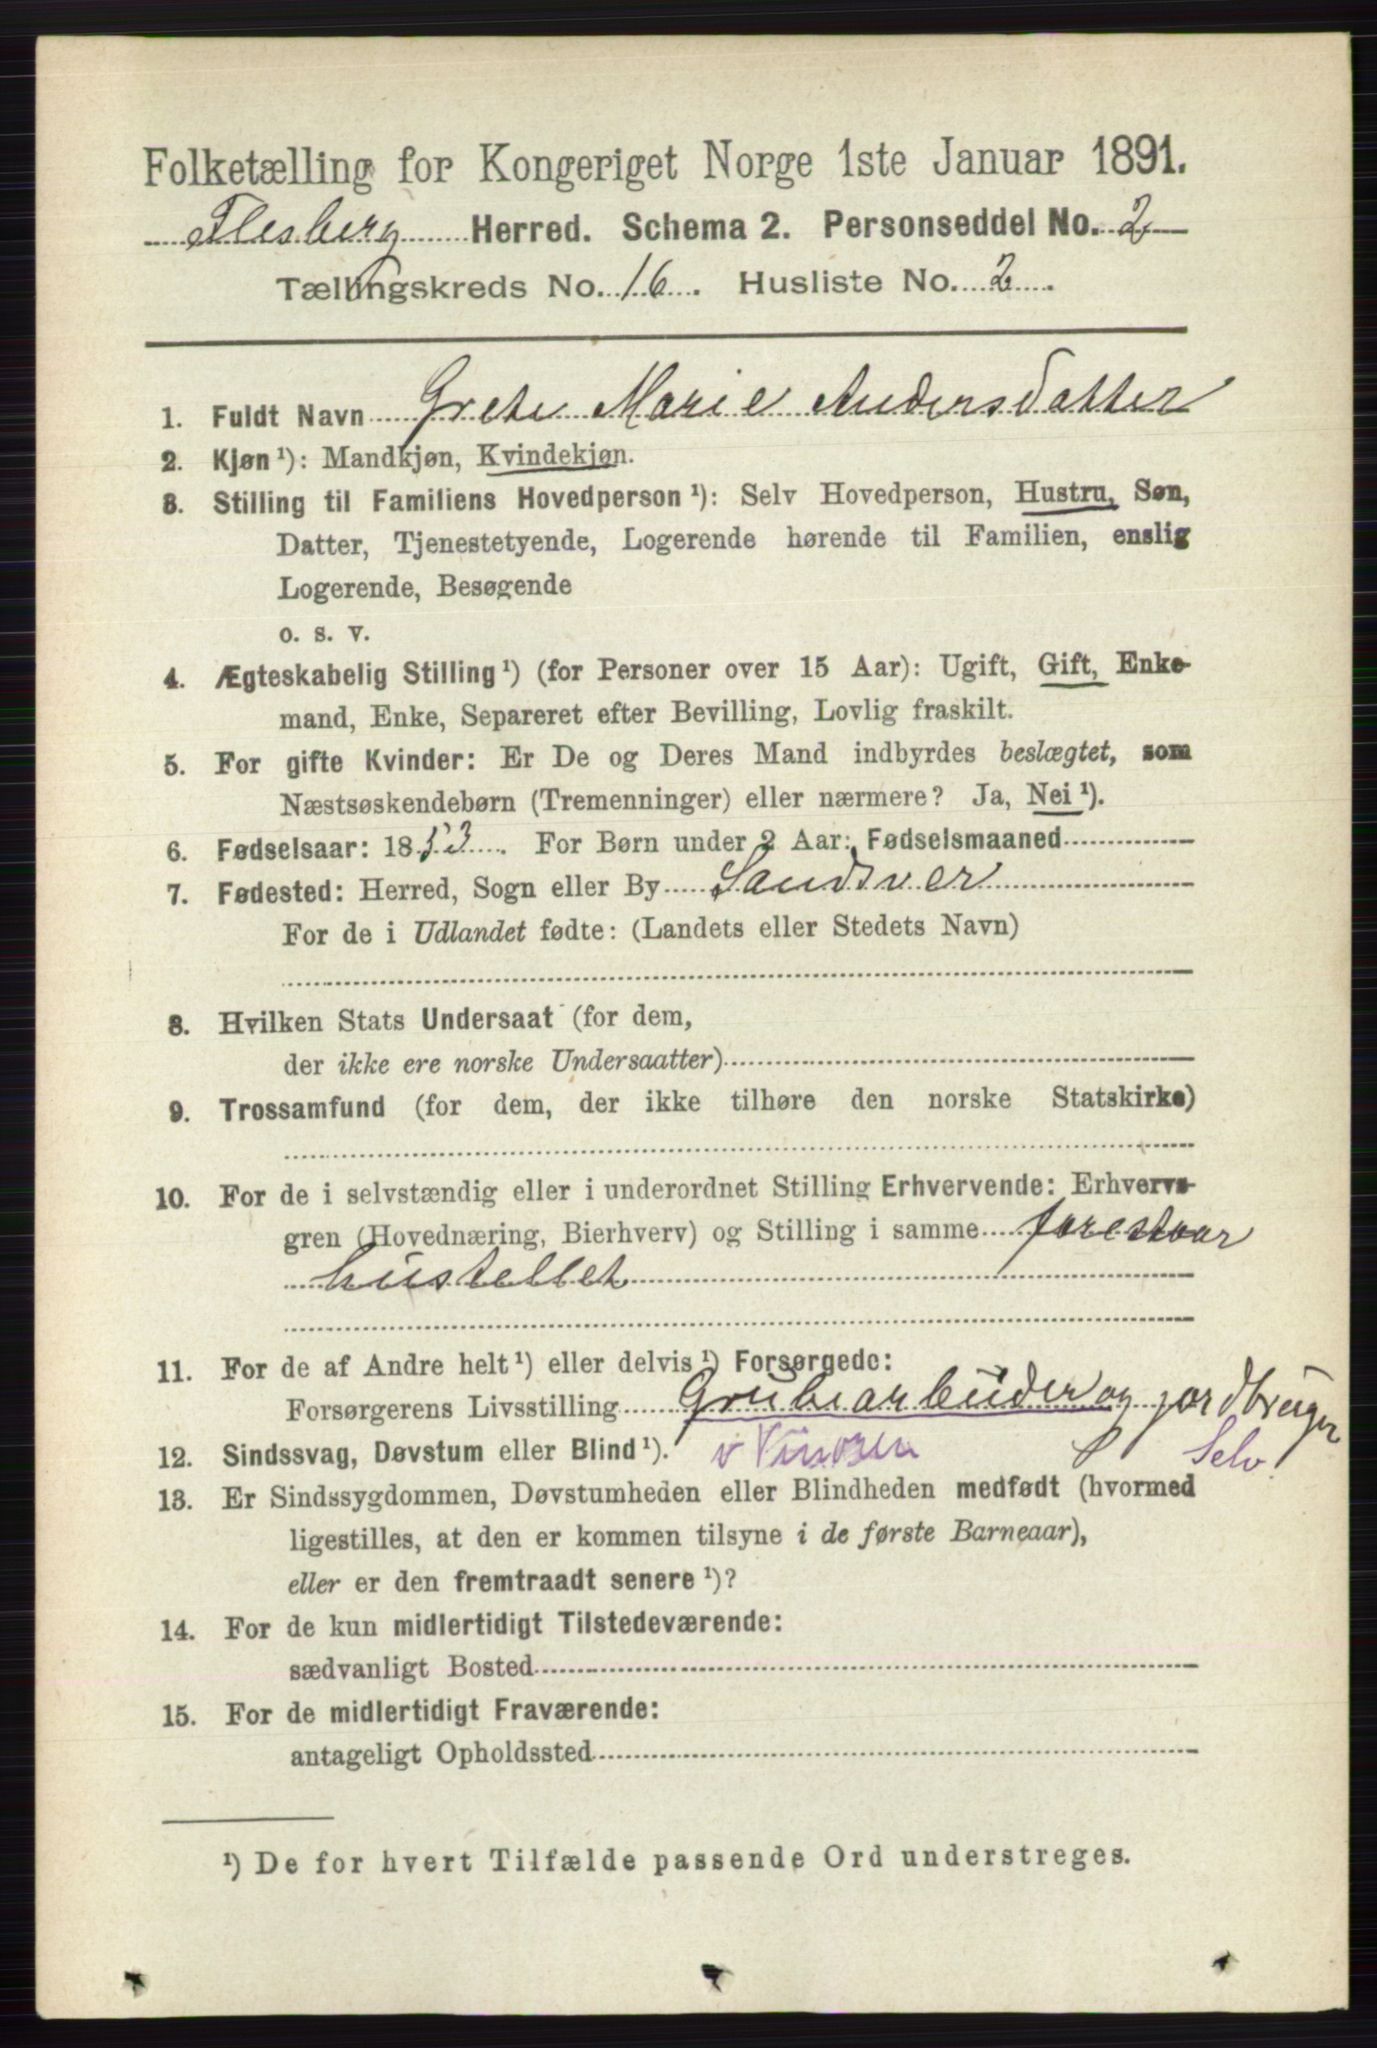 Folketælling for Kongeriget Norge 1ste Januar 1891.
Flesberg Herred. Schema 2. Personseddel No. 2
Tællingskreds No. 16. Husliste No. 2.
1. Fuldt Navn Grete Marie Andersdatter
2. Kjøn ¹): Mandkjøn, Kvindekjøn.
3. Stilling til Familiens Hovedperson ¹): Selv Hovedperson, Hustru, Søn,
Datter, Tjenestetyende, Logerende hørende til Familien, enslig
Logerende, Besøgende
o. s. v.
4. Ægteskabelig Stilling ¹) (for Personer over 15 Aar): Ugift, Gift, Enke-
mand, Enke, Separeret efter Bevilling, Lovlig fraskilt.
5. For gifte Kvinder: Er De og Deres Mand indbyrdes beslægtet, som
Næstsøskendebørn (Tremenninger) eller nærmere? Ja, Nei ¹).
6. Fødselsaar: 1853. For Børn under 2 Aar: Fødselsmaaned
7. Fødested: Herred, Sogn eller By Sandsver
For de i Udlandet fødte: (Landets eller Stedets Navn)
8. Hvilken Stats Undersaat (for dem,
der ikke ere norske Undersaatter)
9. Trossamfund (for dem, der ikke tilhøre den norske Statskirke)
10. For de i selvstændig eller i underordnet Stilling Erhvervende: Erhvervs-
gren (Hovednæring, Bierhverv) og Stilling i samme forestaar
hustellet
11. For de af Andre helt ¹) eller delvis ¹) Forsørgede:
Forsørgerens Livsstilling Grubearbeider og jordbruger
12. Sindssvag, Døvstum eller Blind ¹). v Selv.
13. Er Sindssygdommen, Døvstumheden eller Blindheden medfødt (hvormed
ligestilles, at den er kommen tilsyne i de første Barneaar),
eller er den fremtraadt senere ¹)?
14. For de kun midlertidigt Tilstedeværende:
sædvanligt Bosted
15. For de midlertidigt Fraværende:
antageligt Opholdssted
¹) De for hvert Tilfælde passende Ord understreges.